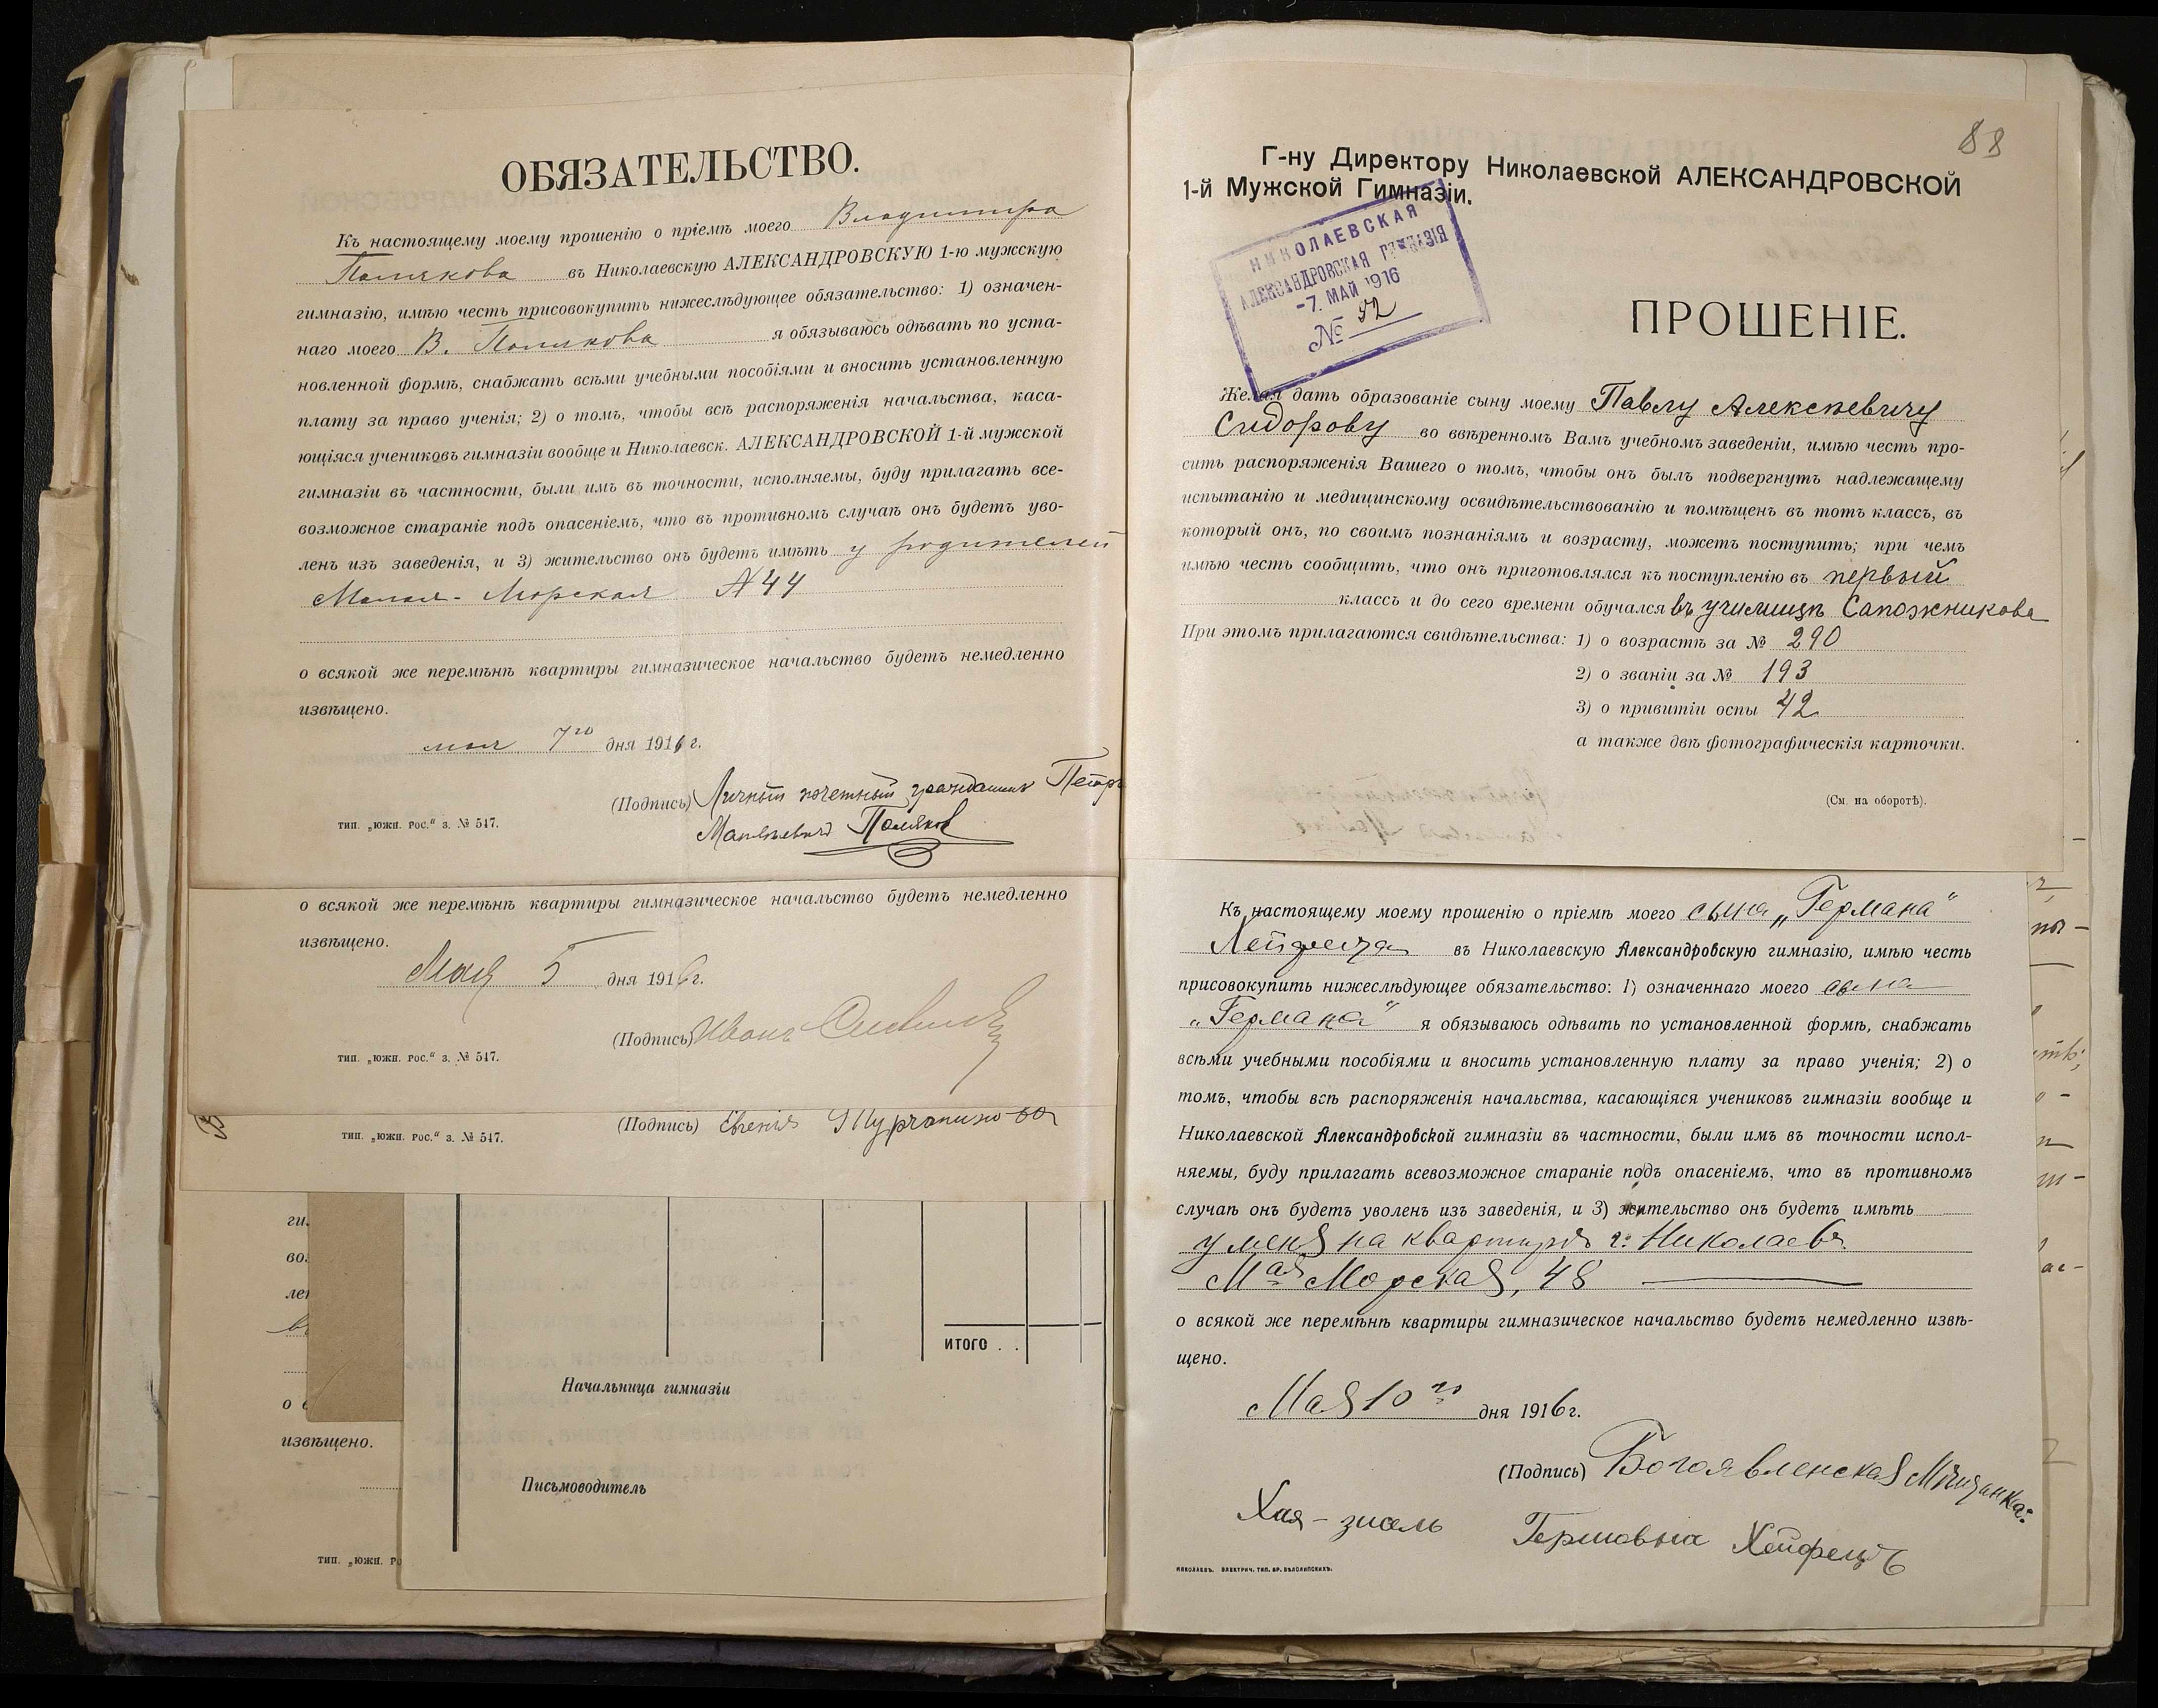 ОБЯЗАТЕЛЬСТВО.
Къ настоящему моему прошенію о пріемѣ моего Владимира
Полякова въ Николаевскую АЛЕКСАНДРОВСКУЮ 1-ю мужскую
гимназію, имѣю честь присовокупить нижеслѣдующее обязательство: 1) означен-
наго моего В. Полякова я обязываюсь одѣвать по уста-
новленной формѣ, снабжать всѣми учебными пособіями и вносить установленную
плату за право ученія; 2) о томъ, чтобы всѣ распоряженія начальства, каса-
ющіяся учениковъ гимназіи вообще и Николаевск. АЛЕКСАНДРОВСКОЙ 1-й мужской
гимназіи въ частности, были имъ въ точности, исполняемы, буду прилагать все-
возможное стараніе подъ опасеніемъ, что въ противномъ случаѣ онъ будетъ уво-
ленъ изъ заведенія, и 3) жительство онъ будетъ имѣть у родителей
Малая - Морская № 44
о всякой же перемѣнѣ квартиры гимназическое начальство будетъ немедленно
извѣщено.
мая 7го дня 1916 г.
(Подпись) Личный почетный гражданинъ Петръ
Матвѣевичъ Поляков
тип. „южн. рос.“ з. № 547.
о всякой же перемѣнѣ квартиры гимназическое начальство будетъ немедленно
извѣщено.
Мая 5 дня 1916 г.
(Подпись) Иванъ
тип. „южн. рос.“ з. № 547.
(Подпись) Евгенія
тип. „южн. рос.“ з. № 547.
ги.
во
лен
ИТОГО . .
Начальница гимназіи
о в
извѣщено.
Письмоводитель
тип. „южн. ро
88
Г-ну Директору Николаевской АЛЕКСАНДРОВСКОЙ
1-й Мужской Гимназіи.
НИКОЛАЕВСКАЯ
АЛЕКСАНДРОВСКАЯ ГИМНАЗІЯ
-7. МАЙ 1916
№ 52
ПРОШЕНІЕ.
Желая дать образованіе сыну моему Павлу Алексѣевичу
Сидорову во ввѣренномъ Вамъ учебномъ заведеніи, имѣю честь про-
сить распоряженія Вашего о томъ, чтобы онъ былъ подвергнутъ надлежащему
испытанію и медицинскому освидѣтельствованію и помѣщенъ въ тотъ классъ, въ
который онъ, по своимъ познаніямъ и возрасту, можетъ поступить; при чемъ
имѣю честь сообщить, что онъ приготовлялся къ поступленію въ первый
классъ и до сего времени обучался въ училищѣ Сапожникова
При этомъ прилагаются свидѣтельства: 1) о возрастѣ за № 290
2) о званіи за № 193
3) о привитіи оспы 42
а также двѣ фотографическія карточки.
(См. на оборотѣ).
Къ настоящему моему прошенію о пріемѣ моего сына „Германа“
Хейфеца въ Николаевскую Александровскую гимназію, имѣю честь
присовокупить нижеслѣдующее обязательство: 1) означеннаго моего сына
„Германа“ я обязываюсь одѣвать по установленной формѣ, снабжать
всѣми учебными пособіями и вносить установленную плату за право ученія; 2) о
томъ, чтобы всѣ распоряженія начальства, касающіяся учениковъ гимназіи вообще и
Николаевской Александровской гимназіи въ частности, были имъ въ точности испол-
няемы, буду прилагать всевозможное стараніе подъ опасеніемъ, что въ противномъ
случаѣ онъ будетъ уволенъ изъ заведенія, и 3) жительство онъ будетъ имѣть
у меня на квартирѣ г. Николаевъ.
Мая Морская, 48
о всякой же перемѣнѣ квартиры гимназическое начальство будетъ немедленно извѣ-
щено.
Мая 10го дня 1916 г.
(Подпись) Богоявленская Мѣщанка:
Хая-зисль Гершовна Хейфецъ
НИКОЛАЕВЪ. ЭЛЕКТРИЧ. ТИП. БР. БѢЛОЛИПСКИХЪ.